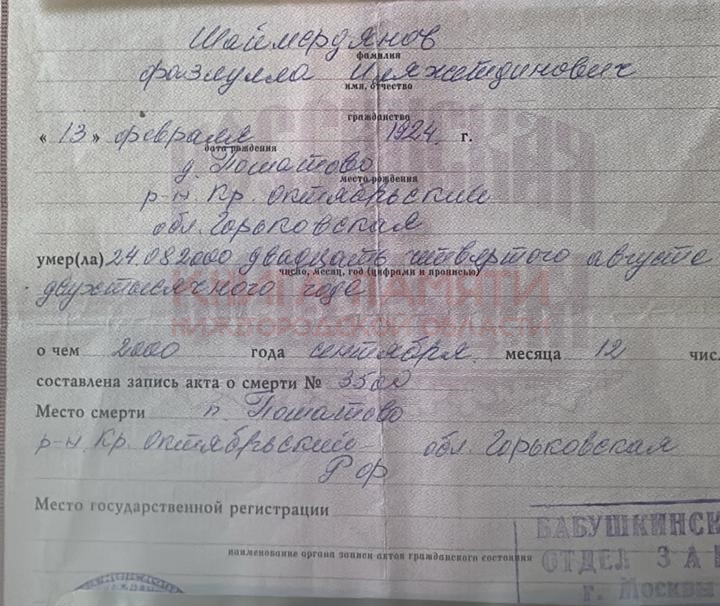 Шаймердянов
фамилия
фазлулла Иляжетдинович
имя, отчество
гражданство
« 13 » февраля 1924 г.
дата рождения
д. Пошатово
место рождения
р-н Кр. Октябрьский
обл. Горьковская
умер(ла) 24.08 2000 двадцать четвёртого августа
число, месяц, год (цифрами и прописью)
двухтысячного года
КНИГА ПАМЯТИ
НИЖЕГОРОДСКОЙ ОБЛАСТИ
о чем 2000 года сентября месяца 12 чис
составлена запись акта о смерти № 3500
Место смерти п. Пошатово
р-н. Кр. Октябрьский обл. Горьковская
Рф
Место государственной регистрации
наименование органа записи актов гражданского состояния
БАБУШКИНСК
ОТДЕЛ ЗА
г. Москвы